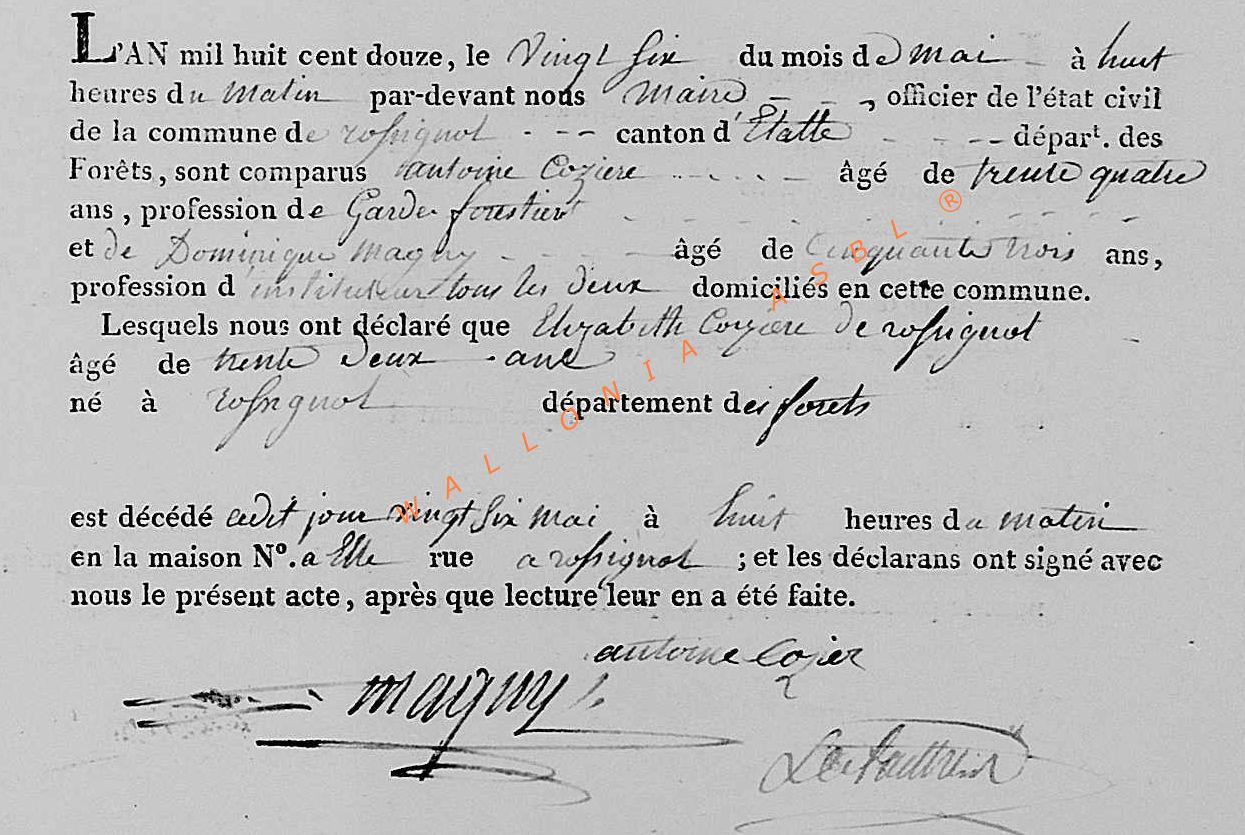 L'AN mil huit cent douze, le Vingt six du mois de mai à huit
heures du matin par-devant nous maire, officier de l'état civil
de la commune de rossignol canton d'Etalle départ. des
Forêts, sont comparus antoine Coziere âgé de trente quatre
ans, profession de Garde forestier
et de Dominique magny âgé de Cinquante trois ans,
profession d'instituteur tous les deux domiciliés en cette commune.
Lesquels nous ont déclaré que Elizabeth Coziere de rossignol
âgé de trente deux ans
né à rossignol département des forets
est décédé cedit jour vingt six mai à huit heures du matin
en la maison N°. a Elle rue a rossignol ; et les déclarans ont signé avec
nous le présent acte, après que lecture leur en a été faite.
antoine Cozier
magny
WALLONIA ASBL ®